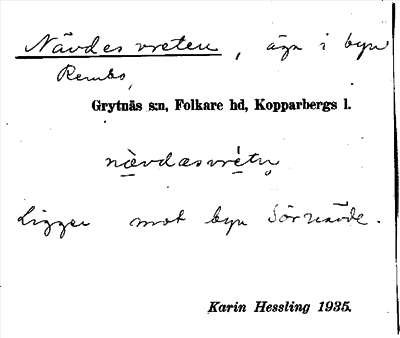 Nävdes vreten, äga i byn
Rembo,
Grytnäs s:n, Folkare hd, Kopparbergs l.
nævdasvrétn̥
Ligger mot byn Sörnävde.
Karin Hessling 1935.